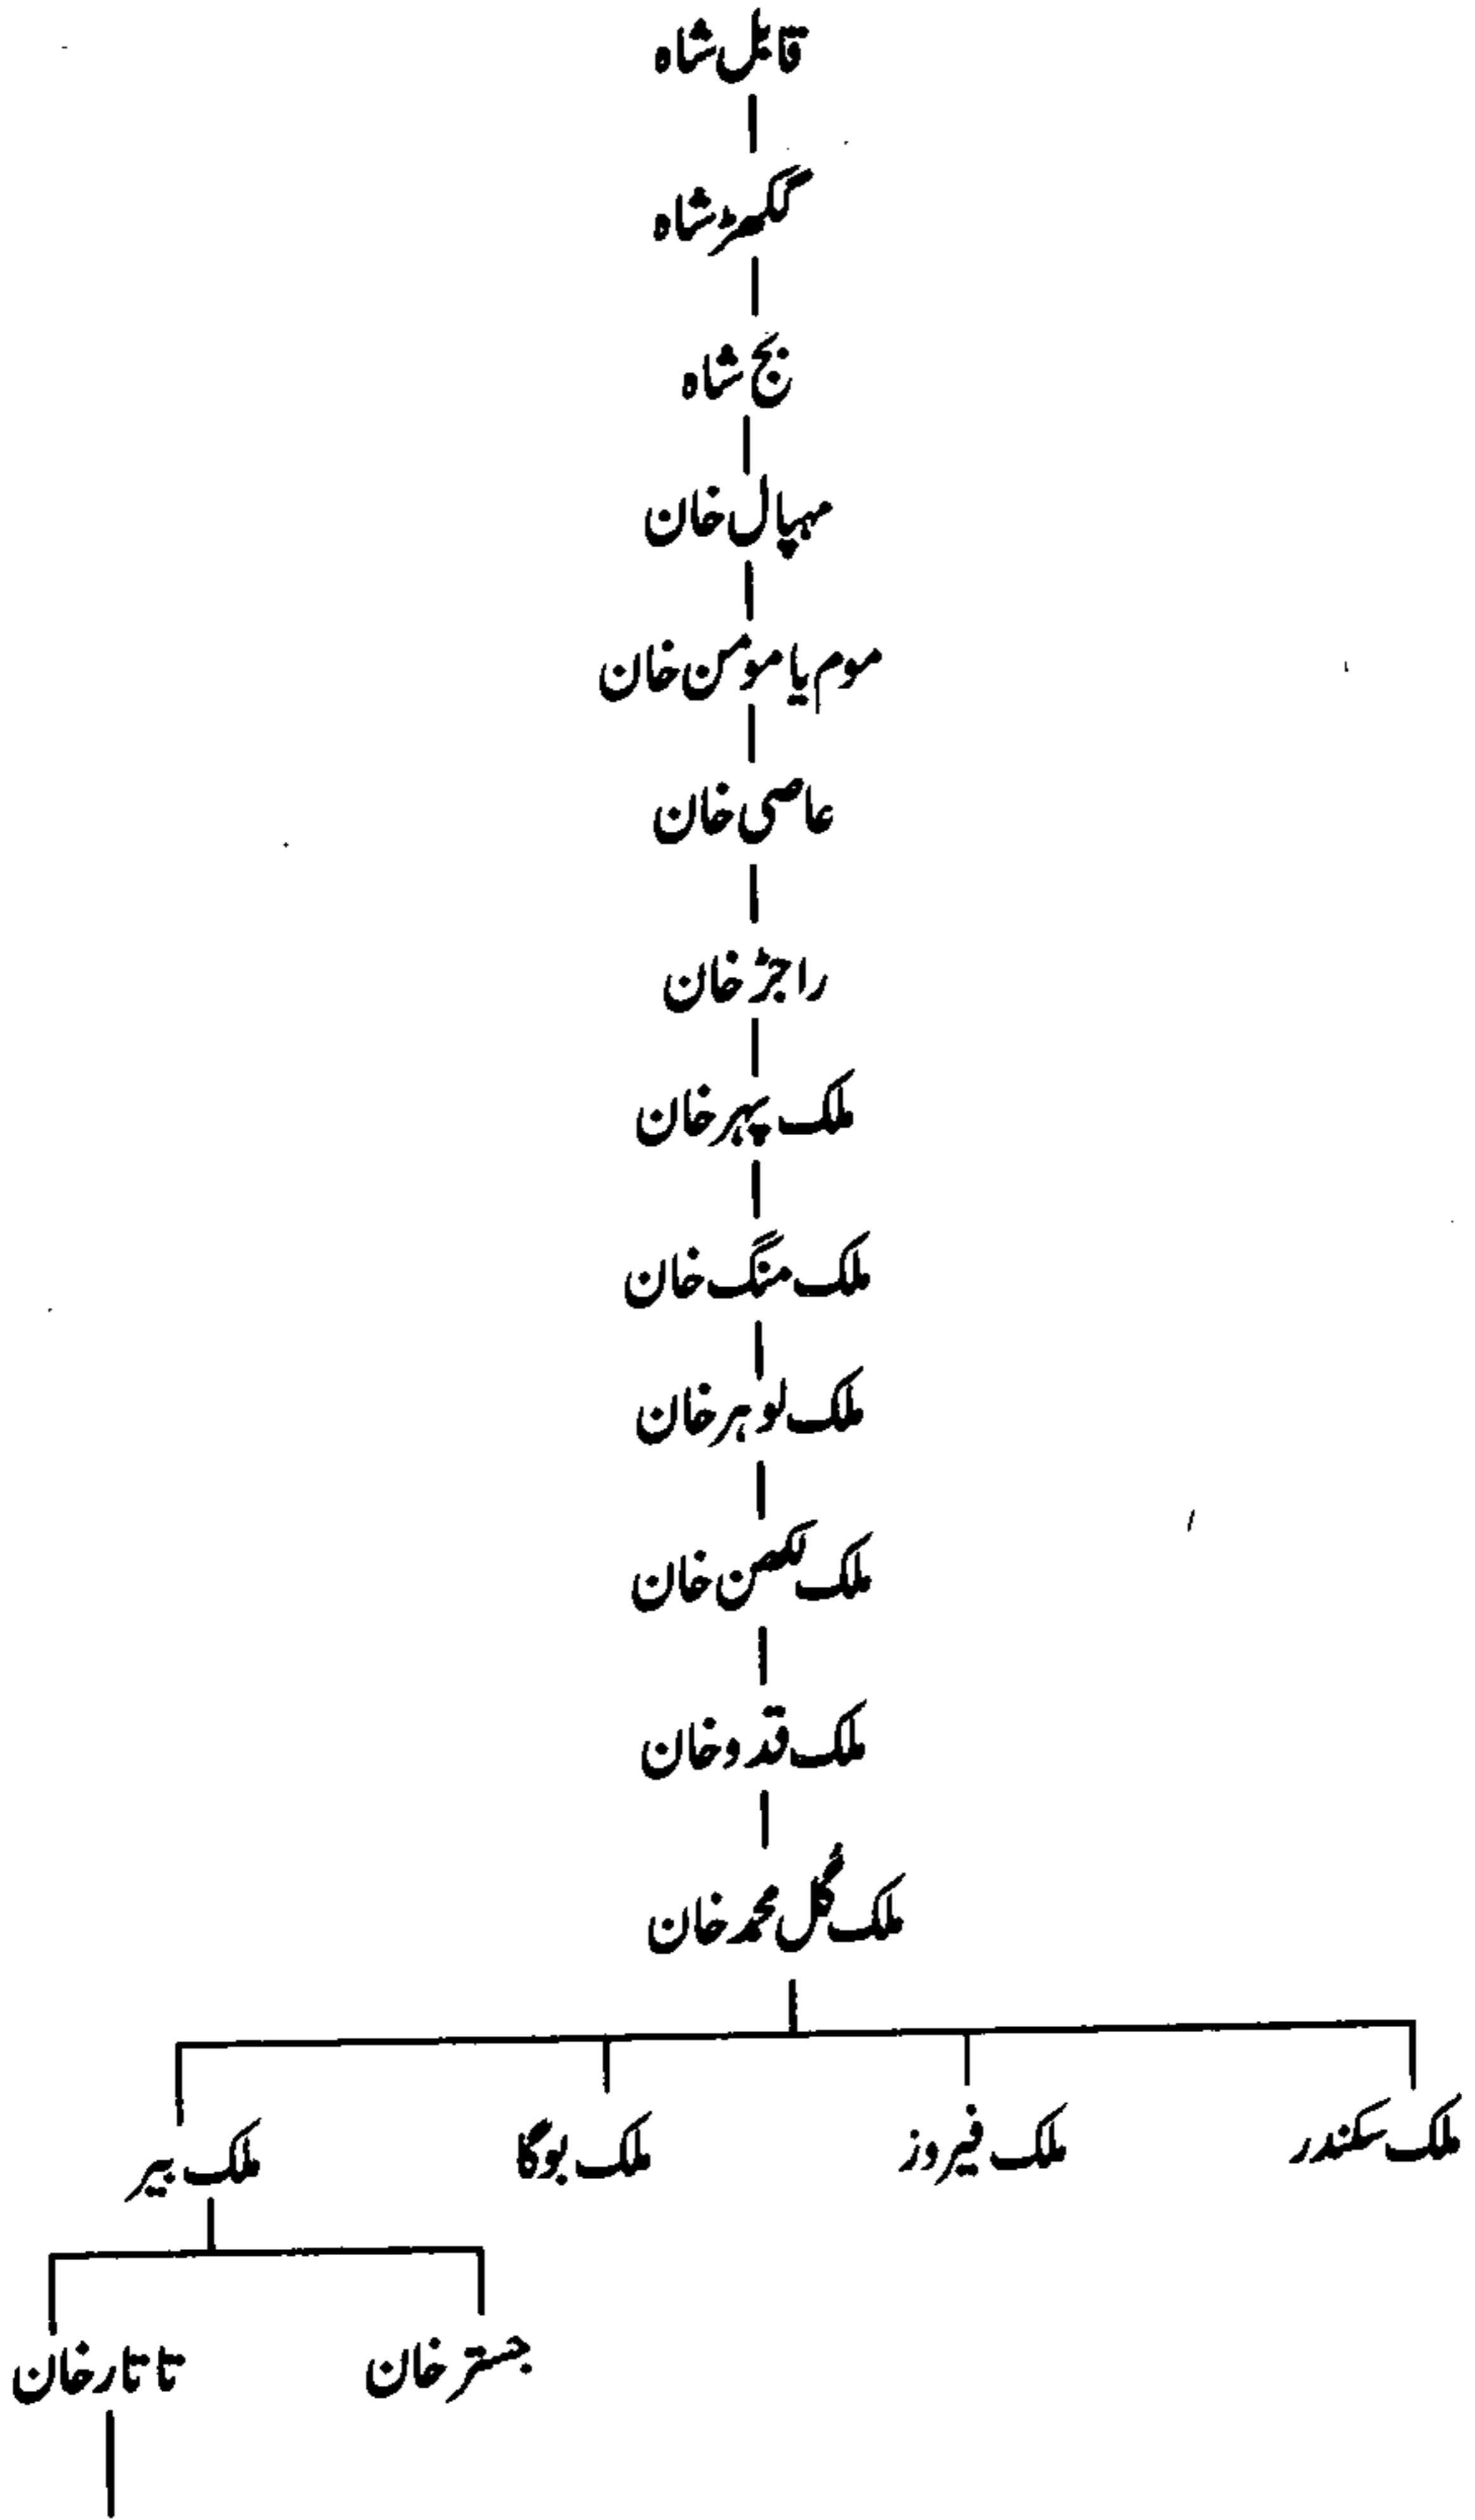 قابل شاہ
گکھڑ شاہ
بج شاہ
مہپال خان
موم یا مومن خان
عاصی خان
راجڑ خان
ملک بہر خان
ملک سنگ خان
ملک لوہر خان
ملک لکھن خان
ملک قدو خان
ملک گُل محمد خان
ملک سکندر
ملک فیروز
ملک بوگا
ملک پیر
جستر خان
تاتار خان